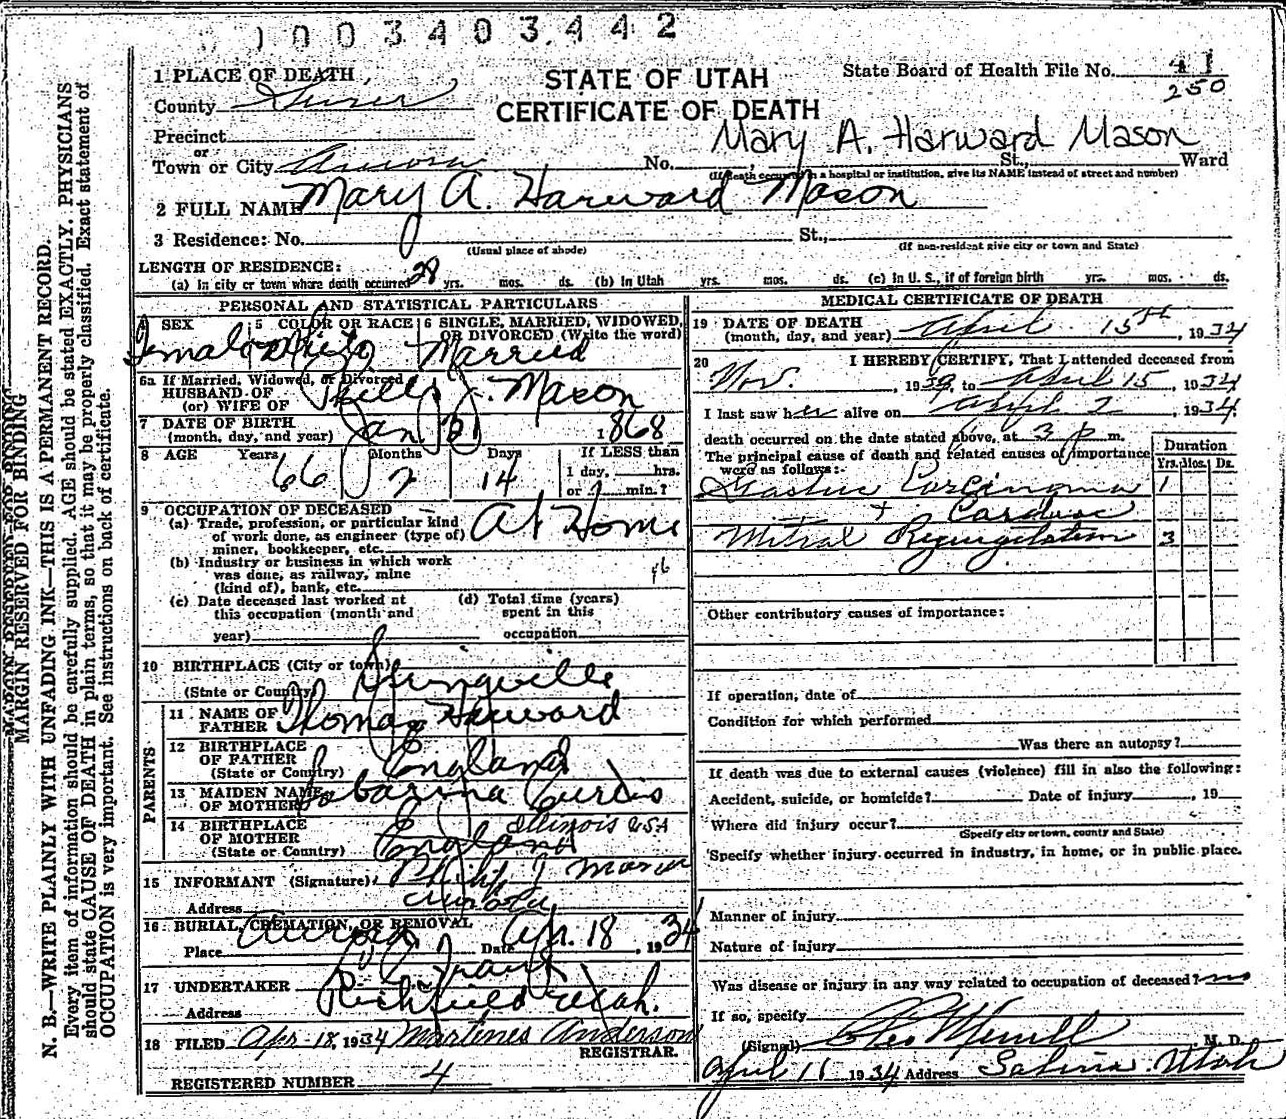 1003403442
1 PLACE OF DEATH
STATE OF UTAH
State Board of Health File No. 41
250
County Sevier
CERTIFICATE OF DEATH
Precinct
Mary A. Harward Mason
or
Town or City Aurora No. , St., Ward
(If death occurred in a hospital or institution, give its NAME instead of street and number)
2 FULL NAME Mary A. Harward Mason
3 Residence: No. St.,
(Usual place of abode) (If non-resident give city or town and State)
LENGTH OF RESIDENCE:
(a) In city or town where death occurred 28 yrs. mos. ds. (b) In Utah yrs. mos. ds. (c) In U. S., if of foreign birth yrs. mos. ds.
PERSONAL AND STATISTICAL PARTICULARS
4 SEX 5 COLOR OR RACE 6 SINGLE, MARRIED, WIDOWED,
OR DIVORCED (Write the word)
Female White Married
6a If Married, Widowed, or Divorced
HUSBAND OF
(or) WIFE OF J. Mason
7 DATE OF BIRTH
(month, day, and year) Jan 1868
8 AGE Years Months Days If LESS than
1 day, hrs.
or min.?
66 2 14
9 OCCUPATION OF DECEASED
(a) Trade, profession, or particular kind
of work done, as engineer (type of)
miner, bookkeeper, etc.
At Home
(b) Industry or business in which work
was done, as railway, mine
(kind of), bank, etc.
(c) Date deceased last worked at
this occupation (month and
year)
(d) Total time (years)
spent in this
occupation
10 BIRTHPLACE (City or town)
(State or Country) Springville
11 NAME OF
FATHER Thomas Harward
12 BIRTHPLACE
OF FATHER
(State or Country) England
13 MAIDEN NAME
OF MOTHER Sabarina Curtis
14 BIRTHPLACE
OF MOTHER
(State or Country) England
Illinois USA
15 INFORMANT (Signature) Philip J Mason
Address Aurora
16 BURIAL, CREMATION, OR REMOVAL
Place Aurora Date Apr. 18, 1934
17 UNDERTAKER
Address Richfield Utah.
18 FILED Apr-18, 1934 Martines Anderson
REGISTRAR.
REGISTERED NUMBER 4
MEDICAL CERTIFICATE OF DEATH
19 DATE OF DEATH
(month, day, and year) April 15th, 1934
20 I HEREBY CERTIFY, That I attended deceased from
Nov. , to April 15, 1934
I last saw her alive on April 2, 1934
death occurred on the date stated above, at 3 p m.
The principal cause of death and related causes of importance
were as follows:-
Duration
Yrs. Mos. Ds.
Gastric Carcinoma 1
+ Cardiac
Mitral Regurgitation 3
Other contributory causes of importance:
If operation, date of
Condition for which performed
Was there an autopsy?
If death was due to external causes (violence) fill in also the following:
Accident, suicide, or homicide? Date of injury , 19
Where did injury occur?
(Specify city or town, county and State)
Specify whether injury occurred in industry, in home, or in public place.
Manner of injury
Nature of injury
Was disease or injury in any way related to occupation of deceased? no
If so, specify
(Signed) Merrill M. D.
April 16 1934 Address Salina Utah
MARGIN RESERVED FOR BINDING
N. B.—WRITE PLAINLY WITH UNFADING INK—THIS IS A PERMANENT RECORD.
Every item of information should be carefully supplied. AGE should be stated EXACTLY. PHYSICIANS
should state CAUSE OF DEATH in plain terms, so that it may be properly classified. Exact statement of
OCCUPATION is very important. See instructions on back of certificate.
PARENTS